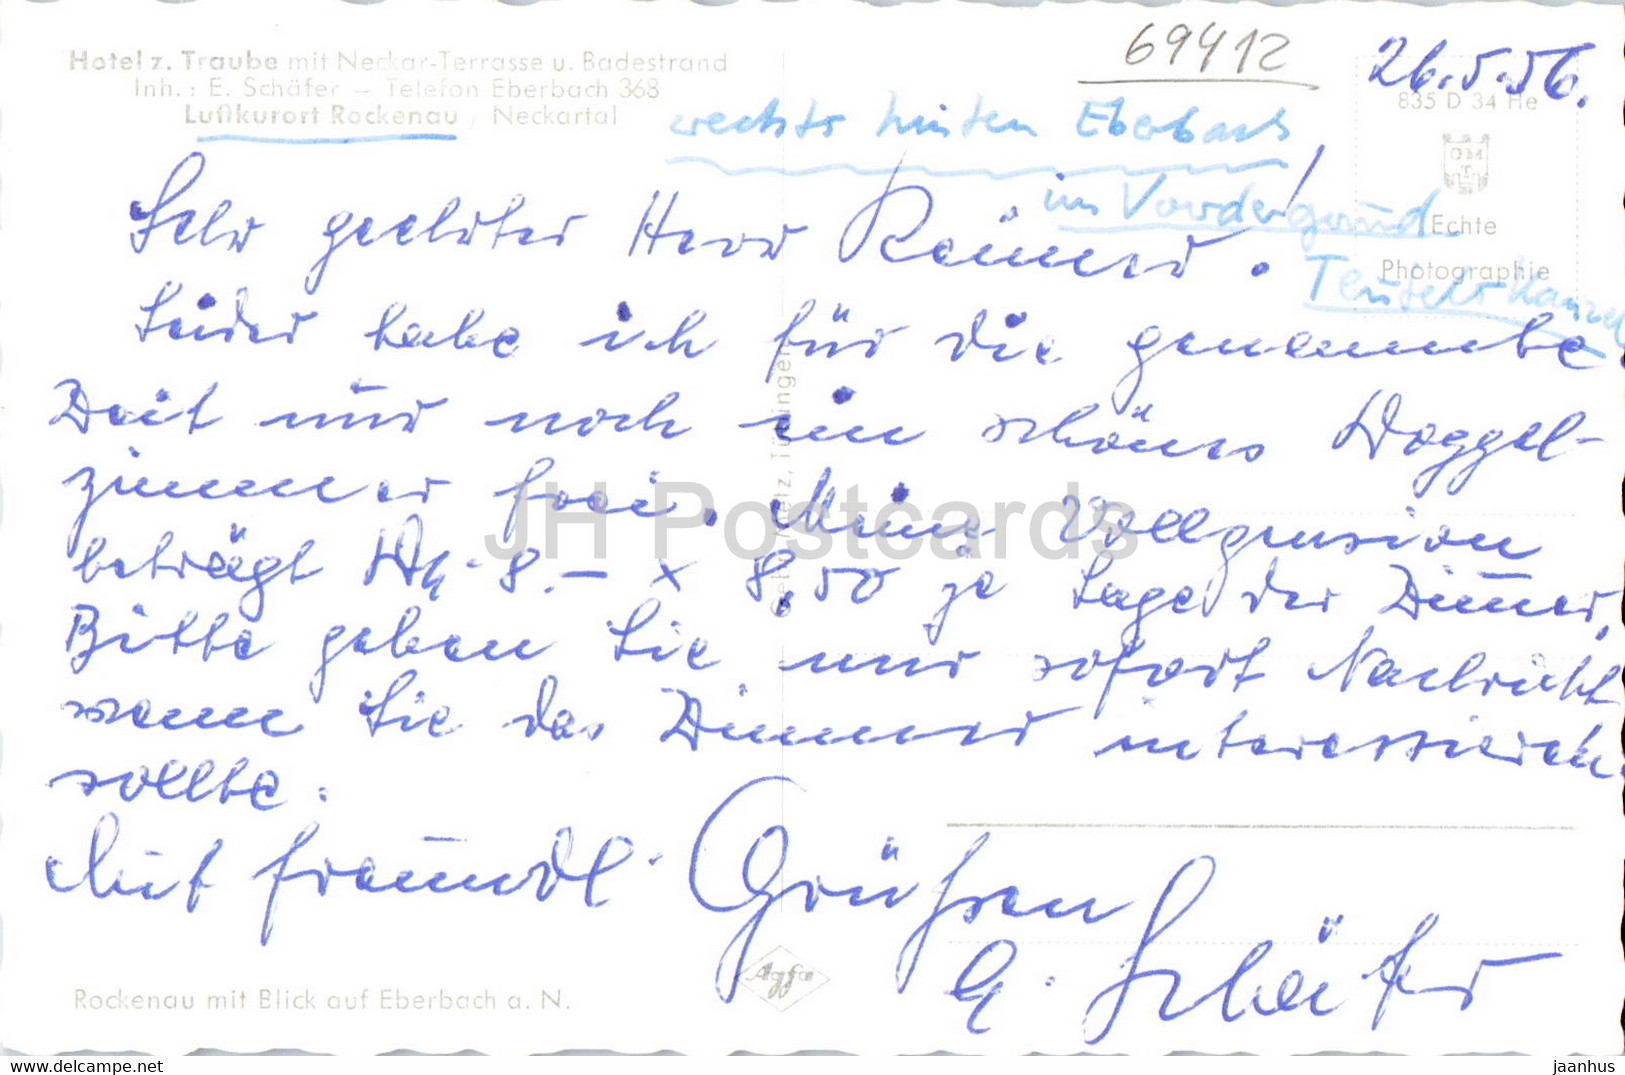 Hotel z. Traube mit Neckar-Terrasse u. Badestrand
Inh. : E. Schäfer – Telefon Eberbach 368
Luftkurort Rockenau, Neckartal
69412
26.5.56.
835 D 34 He
rechts hinten Eberbach
im Vordergrund
Teufelskanzel
Echte
Photographie
Sehr geehrter Herr Reimer!
Leider habe ich für die genannte
Zeit nur noch ein schönes Doppel-
zimmer frei. Meine Vollpension
beträgt DM 8.– x 8,50 je Lage der Zimmer,
Bitte geben Sie mir sofort Nachricht
wenn Sie das Zimmer interessieren
sollte.
Mit freundl. Grüßen
E. Schäfer
Gebr. Metz, Tübingen
Agfa
Rockenau mit Blick auf Eberbach a. N.
JH Postcards
www.delcampe.net
jaanhus